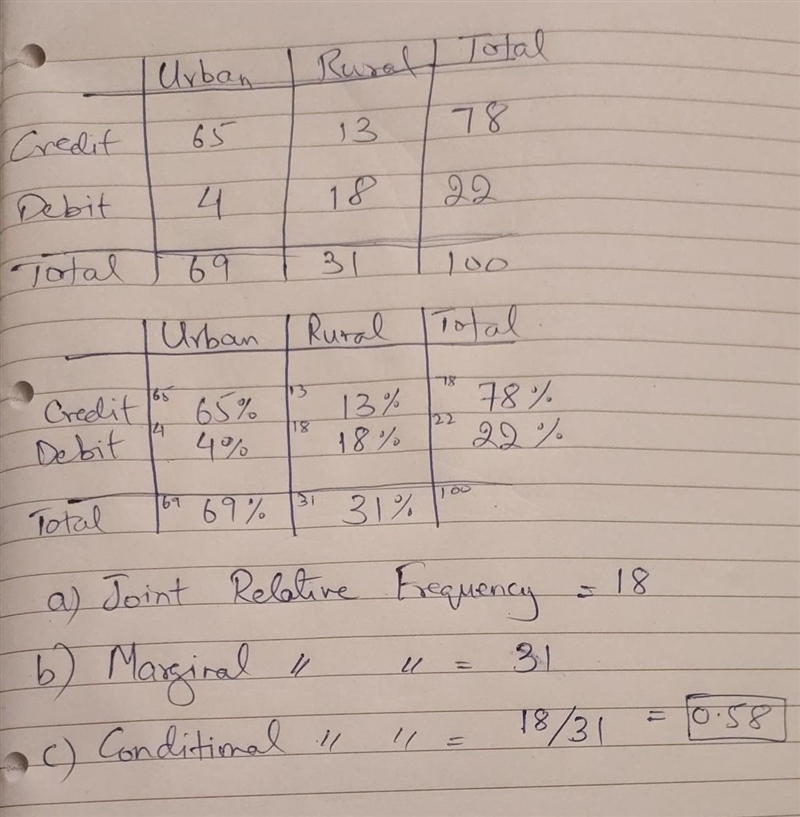 Urban Rural Total
Credit 65 13 78
Debit 4 18 22
Total 69 31 100
Urban Rural Total
Credit 65 65% 13 13% 78 78%
Debit 4 4% 18 18% 22 22%
Total 69 69% 31 31% 100
a) Joint Relative Frequency = 18
b) Marginal " " = 31
c) Conditional " " = 18/31 = 0.58